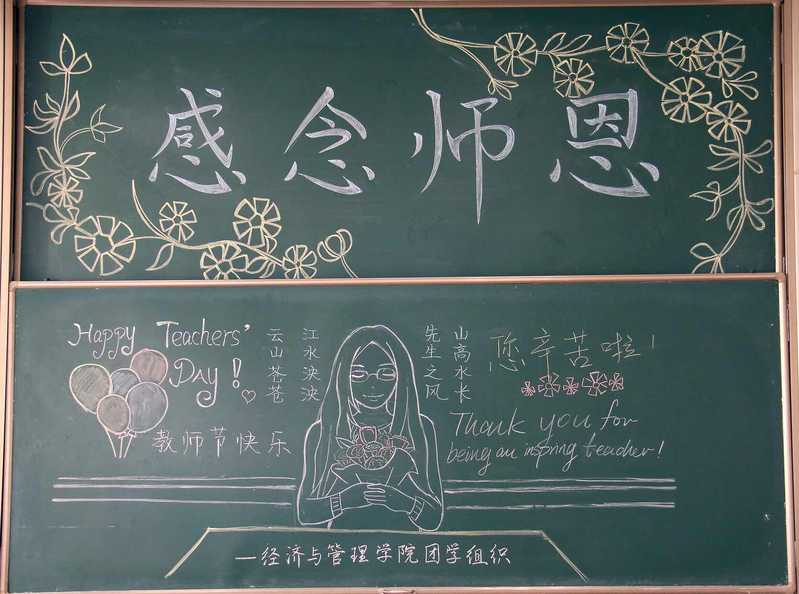 感念师恩
Happy Teachers'
Day!
教师节快乐
云山苍苍
江水泱泱
先生之风
山高水长
您辛苦啦!
Thank you for
being an inspring teacher!
—经济与管理学院团学组织